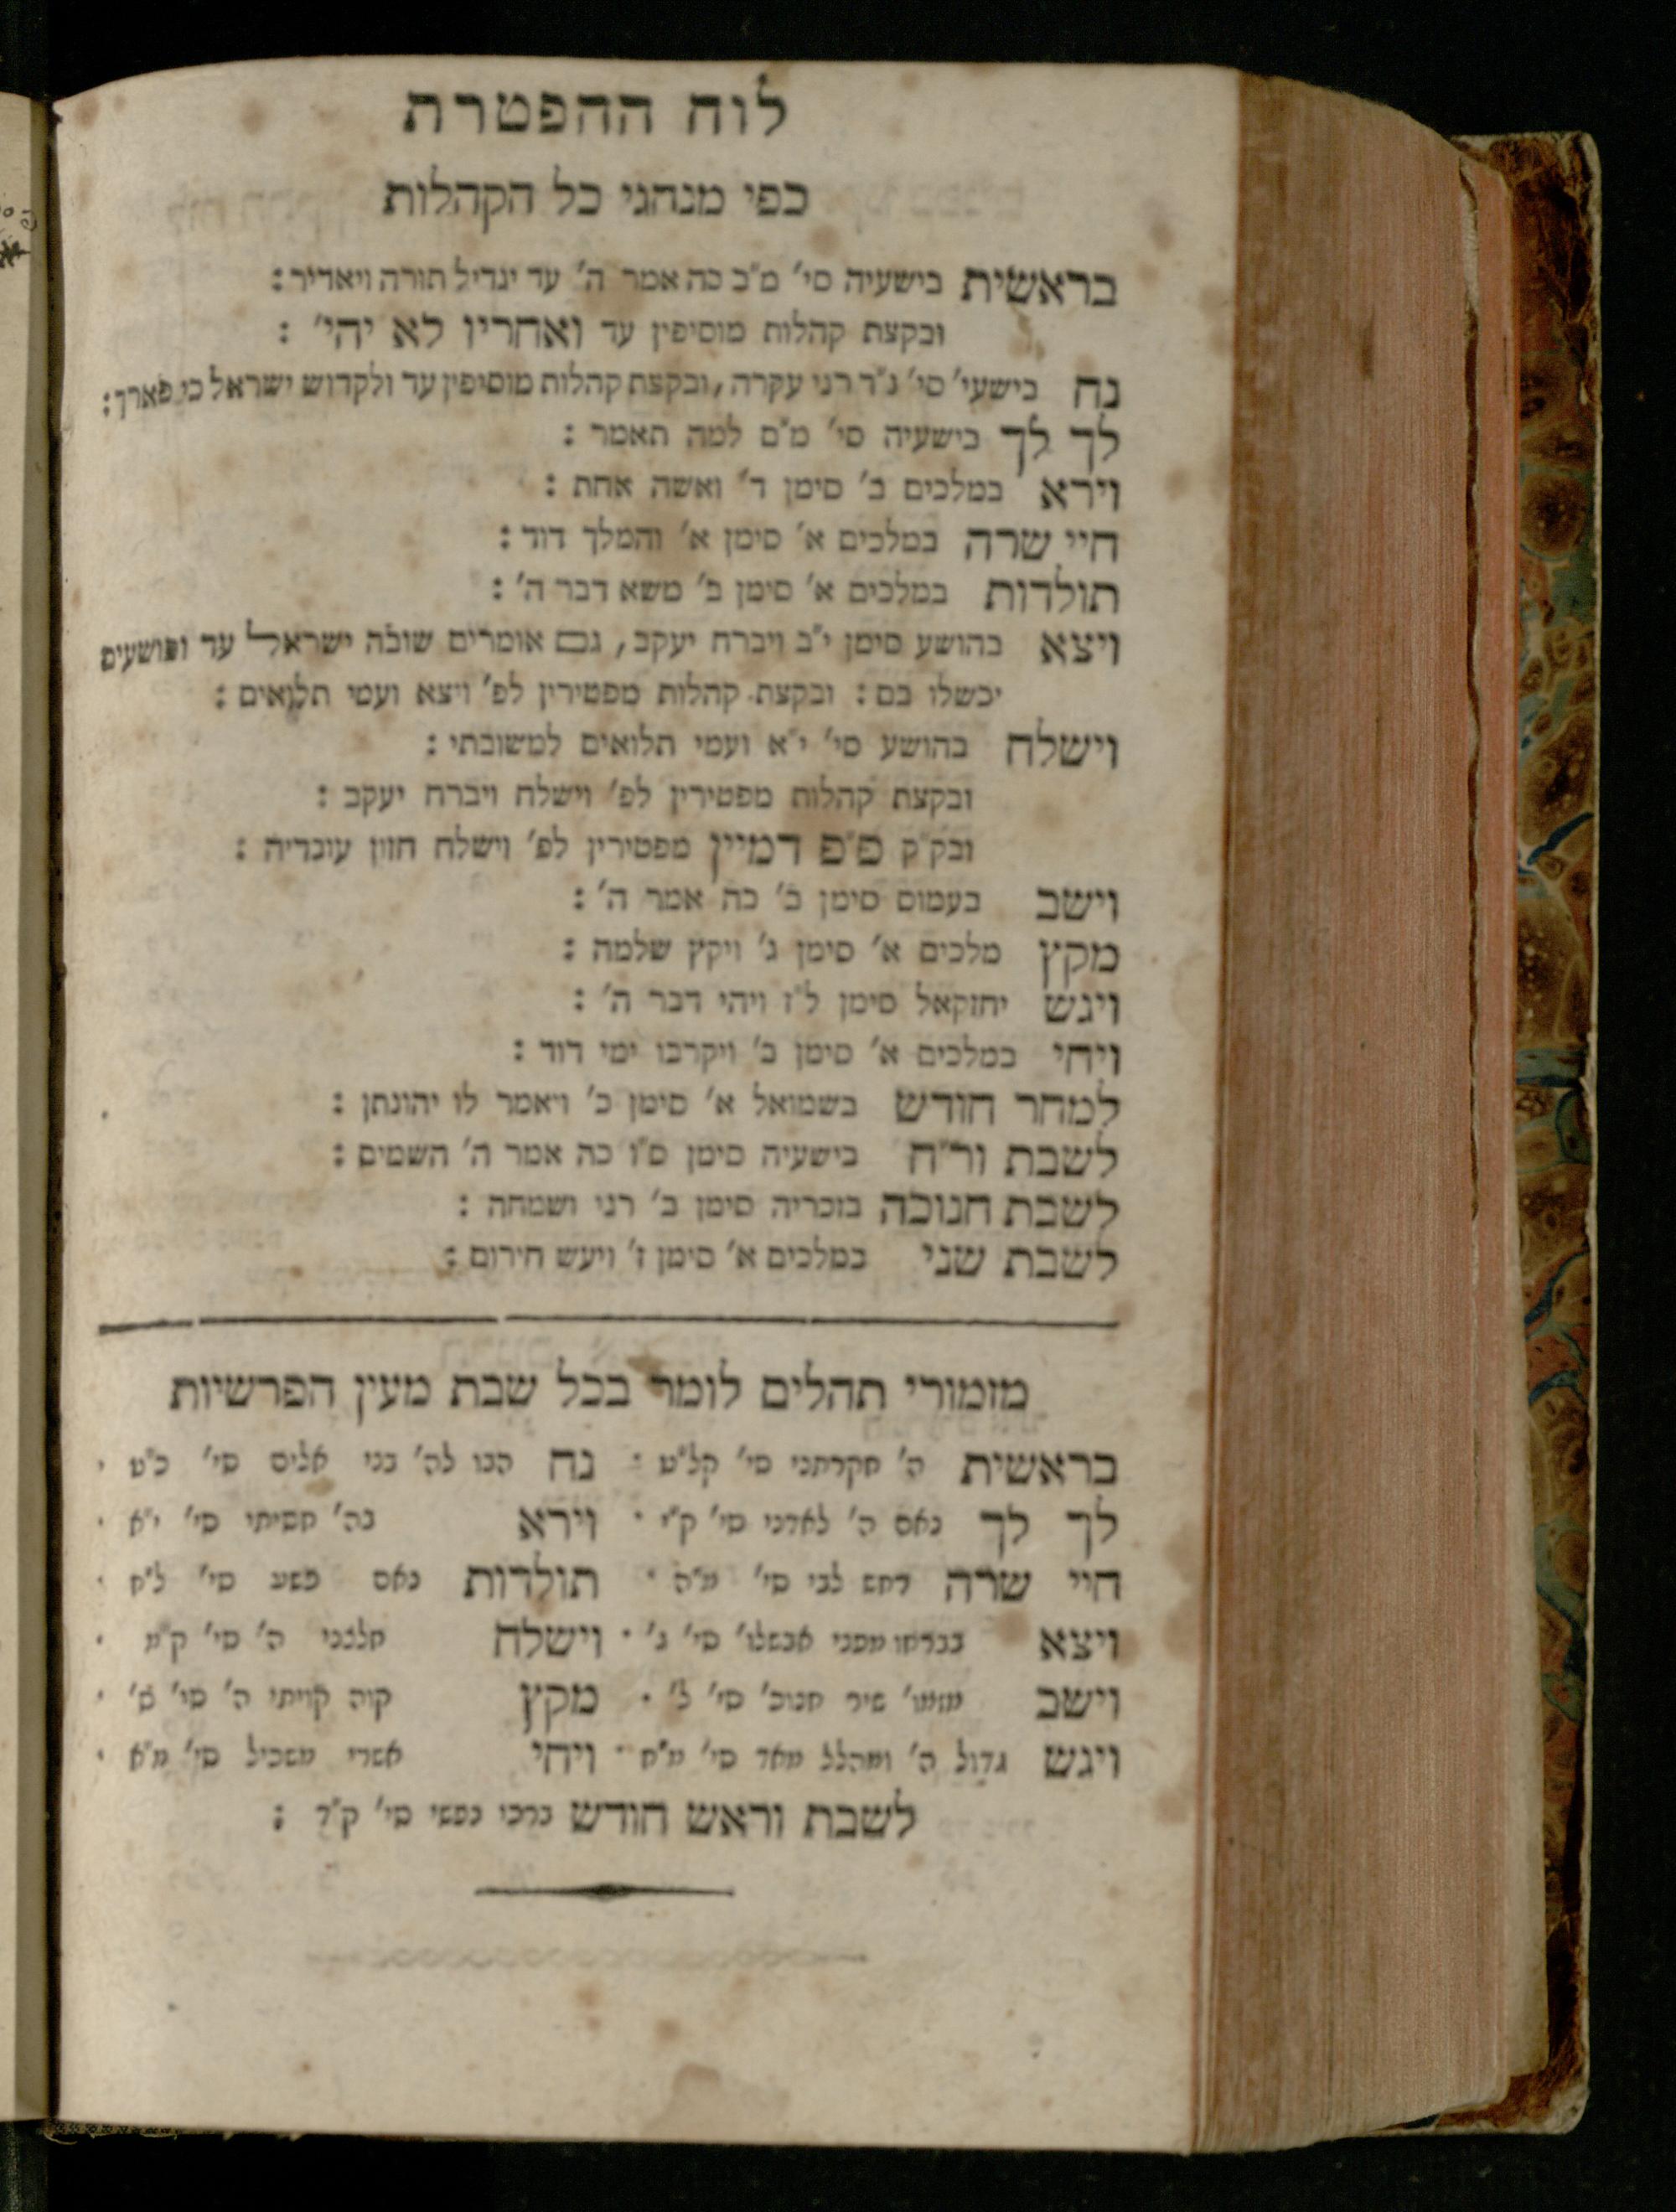 לוח ההפטרת
כפי מנהגי כל הקהלות
בראשית בישעיה סי' מ"ב כה אמר ה' עד יגדיל תורה ויאדיר :
ובקצת קהלות מוסיפין עד ואחריו לא יהי' :
נח בישעי' סי' נ"ד רני עקרה, ובקצת קהלות מוסיפין עד ולקדוש ישראל כי פארך :
לך לך בישעיה סי' מ"ם למה תאמר :
וירא במלכים ב' סימן ד' ואשה אחת :
חיי שרה במלכים א' סימן א' והמלך דוד :
תולדות במלכים א' סימן ב' משא דבר ה' :
ויצא בהושע סימן י"ב ויברח יעקב, גם אומרים שובה ישראל עד ופושעים
יכשלו בם : ובקצת קהלות מפטירין לפ' ויצא ועמי תלואים :
וישלח בהושע סי' י"א ועמי תלואים למשובתי :
ובקצת קהלות מפטירין לפ' וישלח ויברח יעקב :
ובק"ק פ"פ דמיין מפטירין לפ' וישלח חזון עובדיה :
וישב בעמוס סימן ב' כה אמר ה' :
מקץ מלכים א' סימן ג' ויקץ שלמה :
ויגש יחזקאל סימן ל"ז ויהי דבר ה' :
ויחי במלכים א' סימן ב' ויקרבו ימי דוד :
למחר חודש בשמואל א' סימן כ' ויאמר לו יהונתן :
לשבת ור"ח בישעיה סימן ס"ו כה אמר ה' השמים :
לשבת חנוכה בזכריה סימן ב' רני ושמחה :
לשבת שני במלכים א' סימן ז' ויעש חירום :
מזמורי תהלים לומר בכל שבת מעין הפרשיות
בראשית ה' חקרתני סי' קל"ט · נח הבו לה' בני אלים סי' כ"ט ·
לך לך נאם ה' לאדני סי' ק"י · וירא בה' חסיתי סי' י"א ·
חיי שרה רחש לבי סי' מ"ה · תולדות נאם פשע סי' ל"ו ·
ויצא בברחו מפני אבשלו' סי' ג' · וישלח חלצני ה' סי' ק"מ ·
וישב מזמו' שיר חנוכ' סי' ל' · מקץ קוה קויתי ה' סי' מ' ·
ויגש גדול ה' ומהלל מאד סי' מ"ח · ויחי אשרי משכיל סי' מ"א ·
לשבת וראש חודש ברכי נפשי סי' ק"ד :